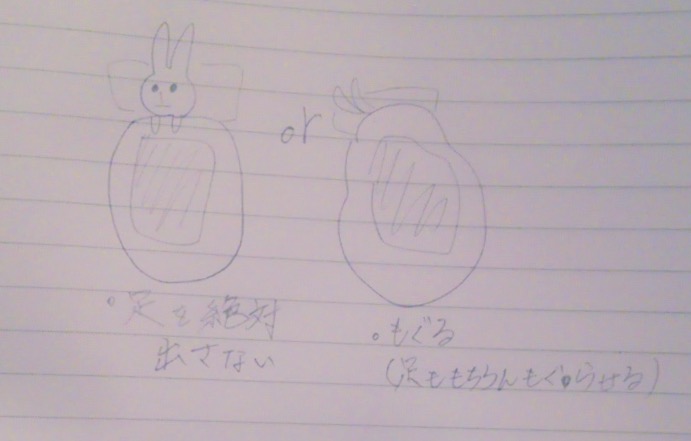 or
・足を絶対
出さない
・もぐる
(足ももちろんもぐらせる)